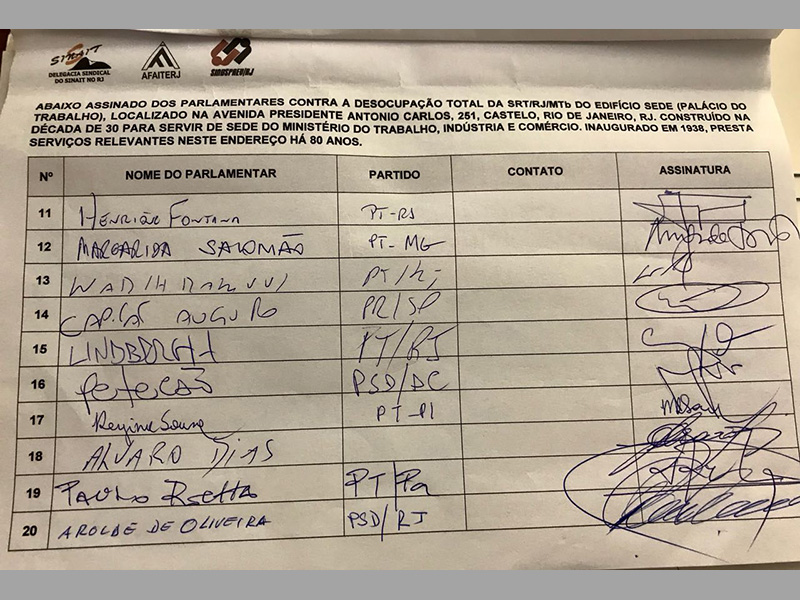 SINAIT
DELEGACIA SINDICAL
DO SINAIT NO RJ
AFAITERJ
SINDSPREV/RJ
ABAIXO ASSINADO DOS PARLAMENTARES CONTRA A DESOCUPAÇÃO TOTAL DA SRT/RJ/MTb DO EDIFÍCIO SEDE (PALÁCIO DO
TRABALHO), LOCALIZADO NA AVENIDA PRESIDENTE ANTONIO CARLOS, 251, CASTELO, RIO DE JANEIRO, RJ. CONSTRUÍDO NA
DÉCADA DE 30 PARA SERVIR DE SEDE DO MINISTÉRIO DO TRABALHO, INDÚSTRIA E COMÉRCIO. INAUGURADO EM 1938, PRESTA
SERVIÇOS RELEVANTES NESTE ENDEREÇO HÁ 80 ANOS.
Nº NOME DO PARLAMENTAR PARTIDO CONTATO ASSINATURA
11 HENRIQUE FONTANA PT-RS
12 MARGARIDA SALOMÃO PT-MG
13 WADIH DAMOUS PT/RJ
14 CAPITÃO AUGUSTO PR/SP
15 LINDBERGH PT/RJ
16 PETECÃO PSD/AC
17 Regina Sousa PT-PI
18 ALVARO DIAS
19 PAULO ROCHA PT/PA
20 AROLDE DE OLIVEIRA PSD/RJ